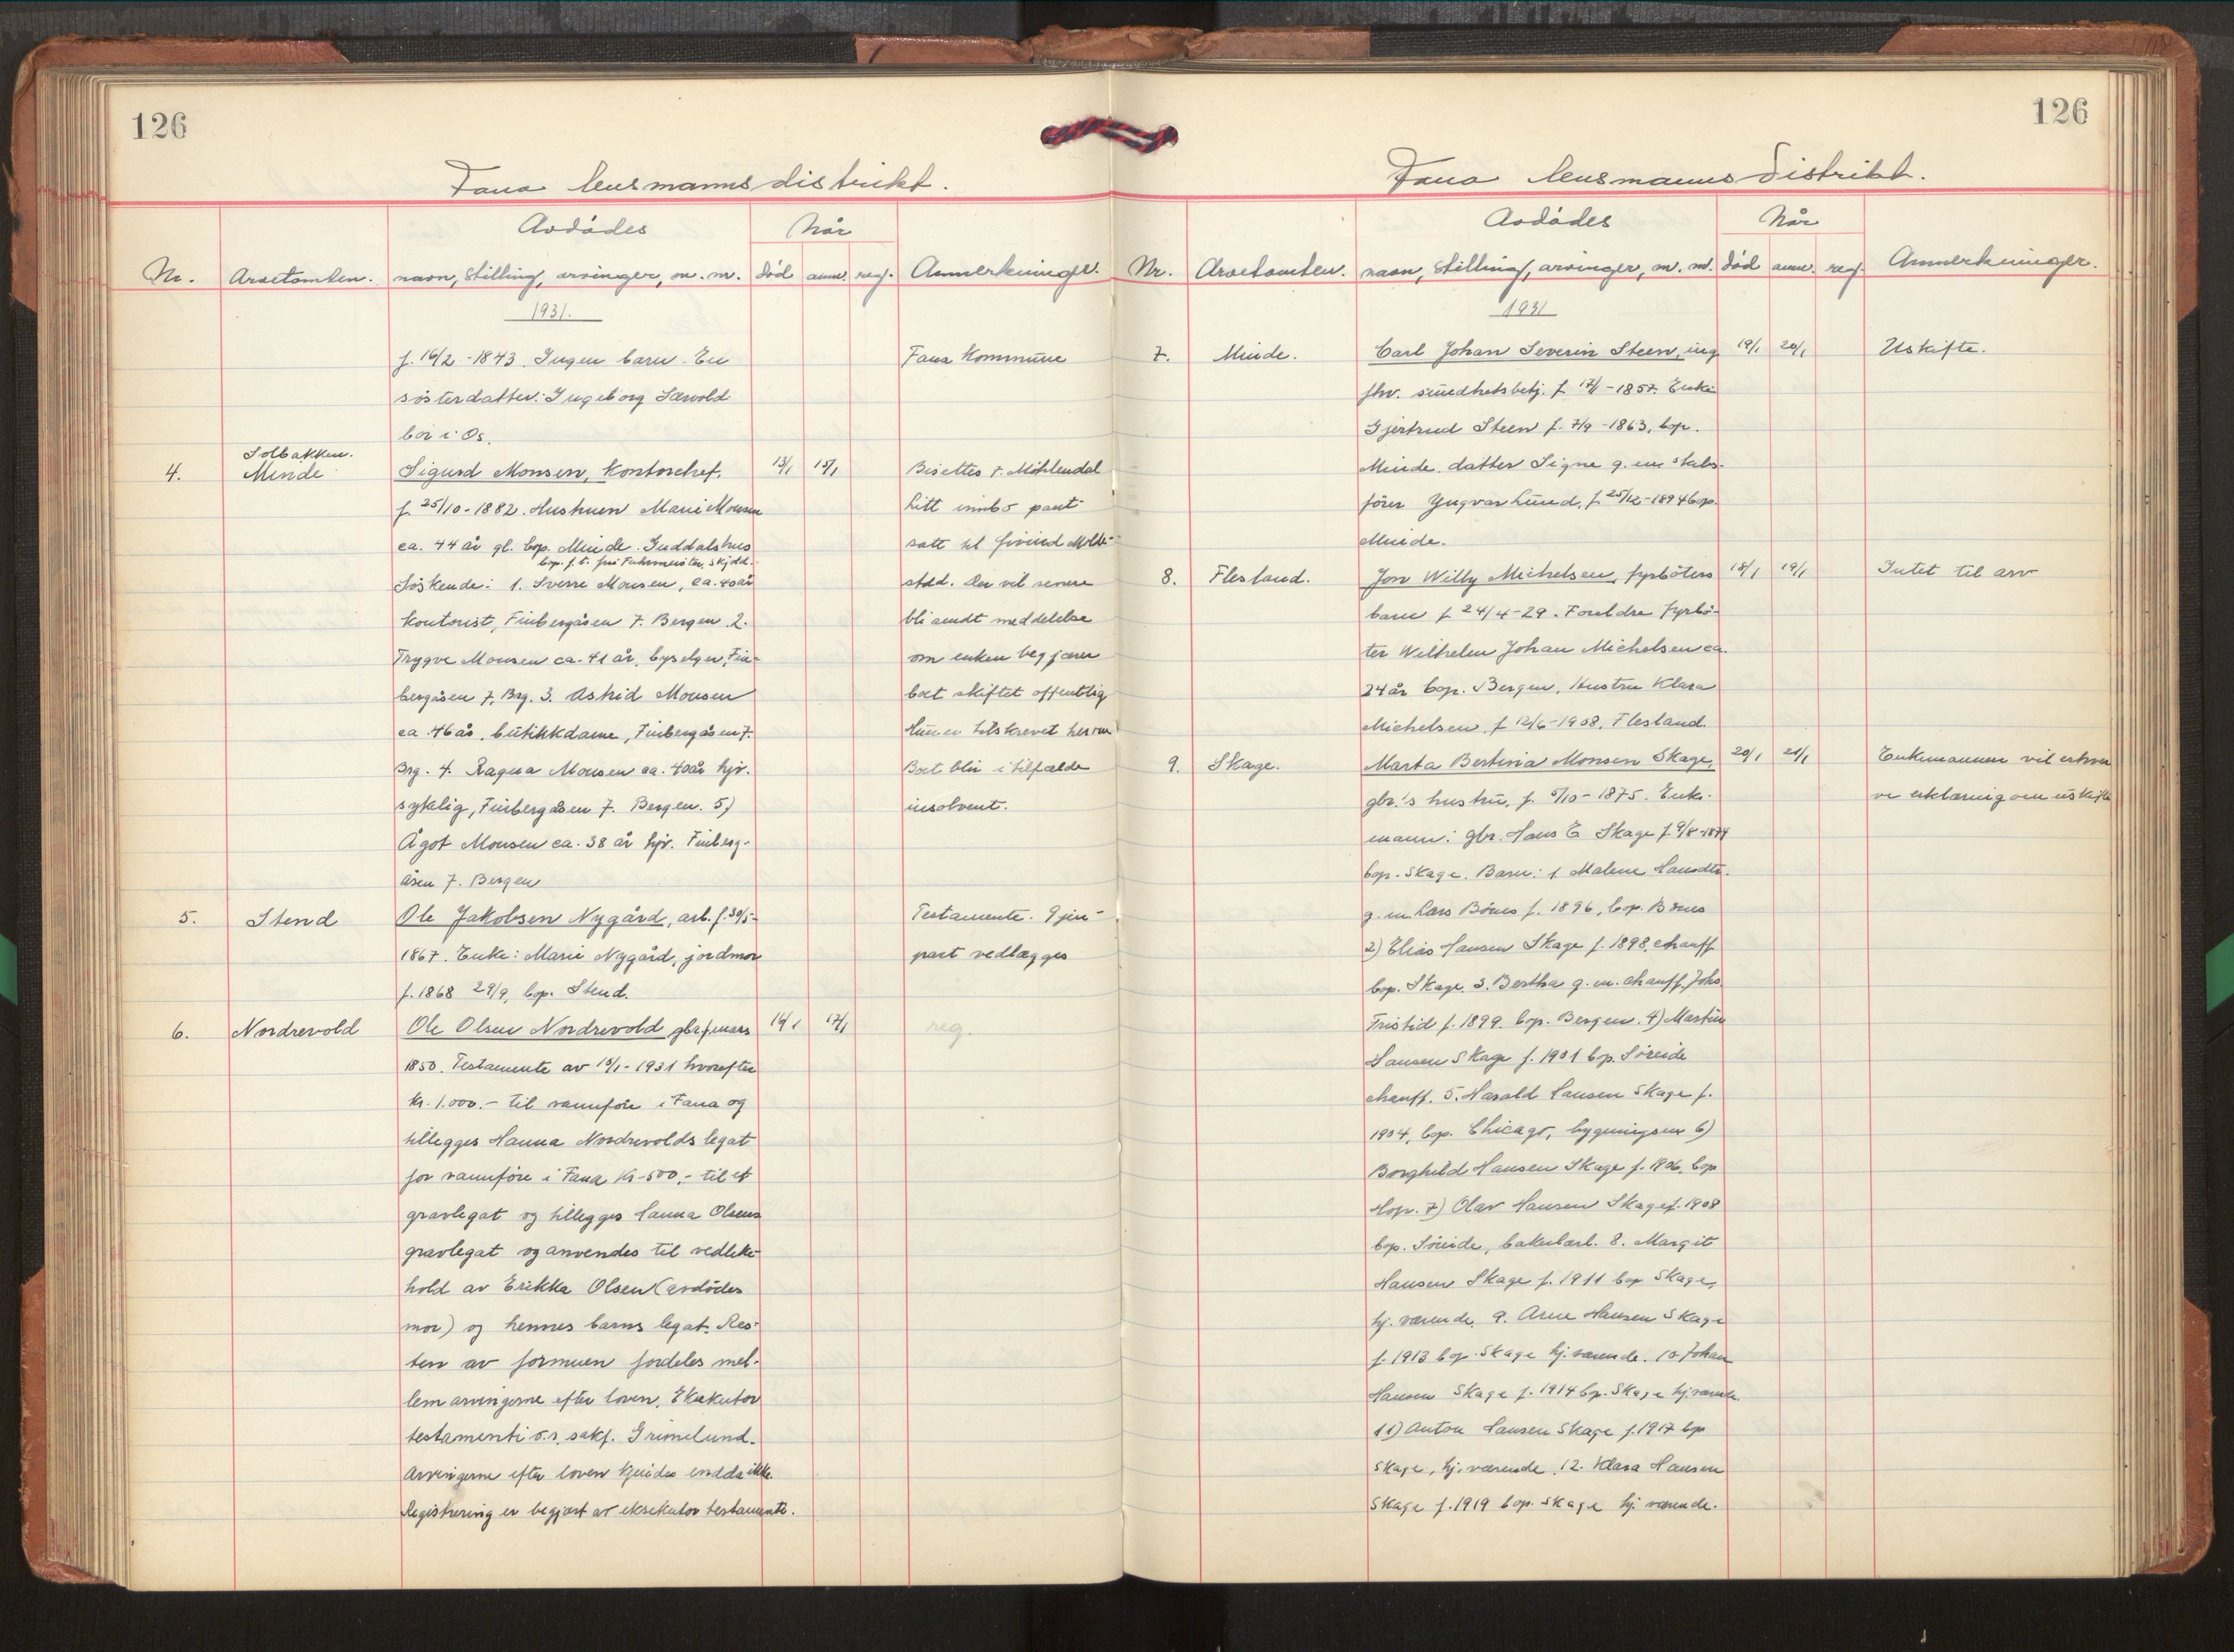 126
Fana lensmannsdistrikt.
Avdödes
Når
Nr. Arvetomten. navn, stilling, arvinger, m. m. död anm. reg. Anmerkninger.
1931.
f. 16/2-1843. Ingen barn. En
Fana Kommune
sösterdatter: Ingeborg Særvold
bor i Os.
Solbakken.
4. Minde Sigurd Monsen, kontorchef. 13/1 15/1 Bisettes f. Möhlendal
f. 25/10-1882. Hustruen Marie Monsen
Litt innbo pant-
ca. 44 år gl. bop. Minde. Inddalshus
satt til Eivind Molde-
bop. f. t. frú Fuhrmester, Skjold.
Söskende: 1. Sverre Monsen, ca. 40 år
stad. Der vil senere
kontorist, Finbergåsen 7. Bergen 2.
bli sendt meddelelse
Trygve Monsen ca. 41 år, byselger, Fin-
om enken begjærer
bergåsen 7, Brg. 3. Astrid Monsen
boet skiftet offentlig
ca. 46 år, butikkdame, Finbergåsen 7.
Hun er tilskrevet herom
Brg. 4. Ragna Monsen ca. 40 år hjv.
Boet blir i tilfælde
sykelig, Finbergåsen 7. Bergen. 5)
insolvent.
Ågot Monsen ca. 38 år hjv. Finberg-
åsen 7. Bergen
5. Stend Ole Jakobsen Nygård, arb. f. 30/5-
Testamente. Gjen-
1867. Enke: Marie Nygård, jordmor
part vedlægges
f. 1868 29/9, bop. Stend.
6. Nordrevold Ole Olsen Nordrevold gbr. f. mars 14/1 17/1 reg.
1850. Testamente av 10/1-1931 hvorefter
kr. 1.000.- til vanføre i Fana og
tillegges Hanna Nordrevolds legat
for vanføre i Fana kr. 500.- til et
gravlegat og tillegges Hanna Olsens
gravlegat og anvendes til vedlike-
hold av Erikka Olsen (avdödes
mor) og hennes barns legat. Res-
ten av formuen fordeles mel-
lem arvingerne efter loven. Eksekutor
testamenti o.r. sakf. Grimelund.
Arvingerne efter loven kjendes endda ikke.
Registrering er begjært av eksekutor testamenti.
126
Fana lensmannsdistrikt.
Avdödes
Når
Nr. Arvetomten. navn, stilling, arvinger, m. m. död anm. reg. Anmerkninger.
1931
7. Minde. Carl Johan Severin Steen, ing 19/1 20/1 Uskifte.
fhv. sundhetsbetj. f 17/1-1857. Enke
Gjertrud Steen f. 7/9-1863, bop.
Minde. datter Signe g. m. stabs-
förer Yngvar Lund, f. 25/12-1894 bop.
Minde.
8. Flesland. Jon Willy Michelsen, fyrböters 18/1 19/1 Intet til arv
barn f. 24/4-29. Foreldre fyrbö-
ter Wilhelm Johan Michelsen ca.
24 år bop. Bergen, Hustru Klara
Michelsen. f 12/6-1908, Flesland.
9. Skage. Marta Bertina Monsen Skage, 20/1 21/1 Enkemannen vil erhver
gbr.'s hustru, f. 5/10-1875. Enke-
ve erklæring om uskifte
mann: gbr. Hans E Skage f. 9/8-1874
bop. Skage. Barn: 1. Malene Hansdtr.
g. m. Lars Bönes f. 1896, bop. Bönes
2) Elias Hansen Skage f. 1898, chauff.
bop. Skage. 3. Bertha g. m. chauff. Johs.
Fristid f. 1899. bop. Bergen. 4) Martin
Hansen Skage f. 1901 bop. Söreide
chauff. 5. Harald Hansen Skage f.
1904, bop. Chicago, bygningsm 6)
Borghild Hansen Skage f. 1906, bop
Hop. 7) Olav Hansen Skage f. 1908
bop. Söreide, bakerlærl. 8. Margit
Hansen Skage f. 1911 bop Skage,
hj. værende. 9. Arne Hansen Skage
f. 1913 bop. Skage hj. værende. 10. Johan
Hansen Skage f. 1914 bp. Skage hj. værende.
11) Anton Hansen Skage f. 1917 bp
Skage, hj. værende. 12. Klara Hansen
Skage f. 1919 bop. Skage hj. værende.